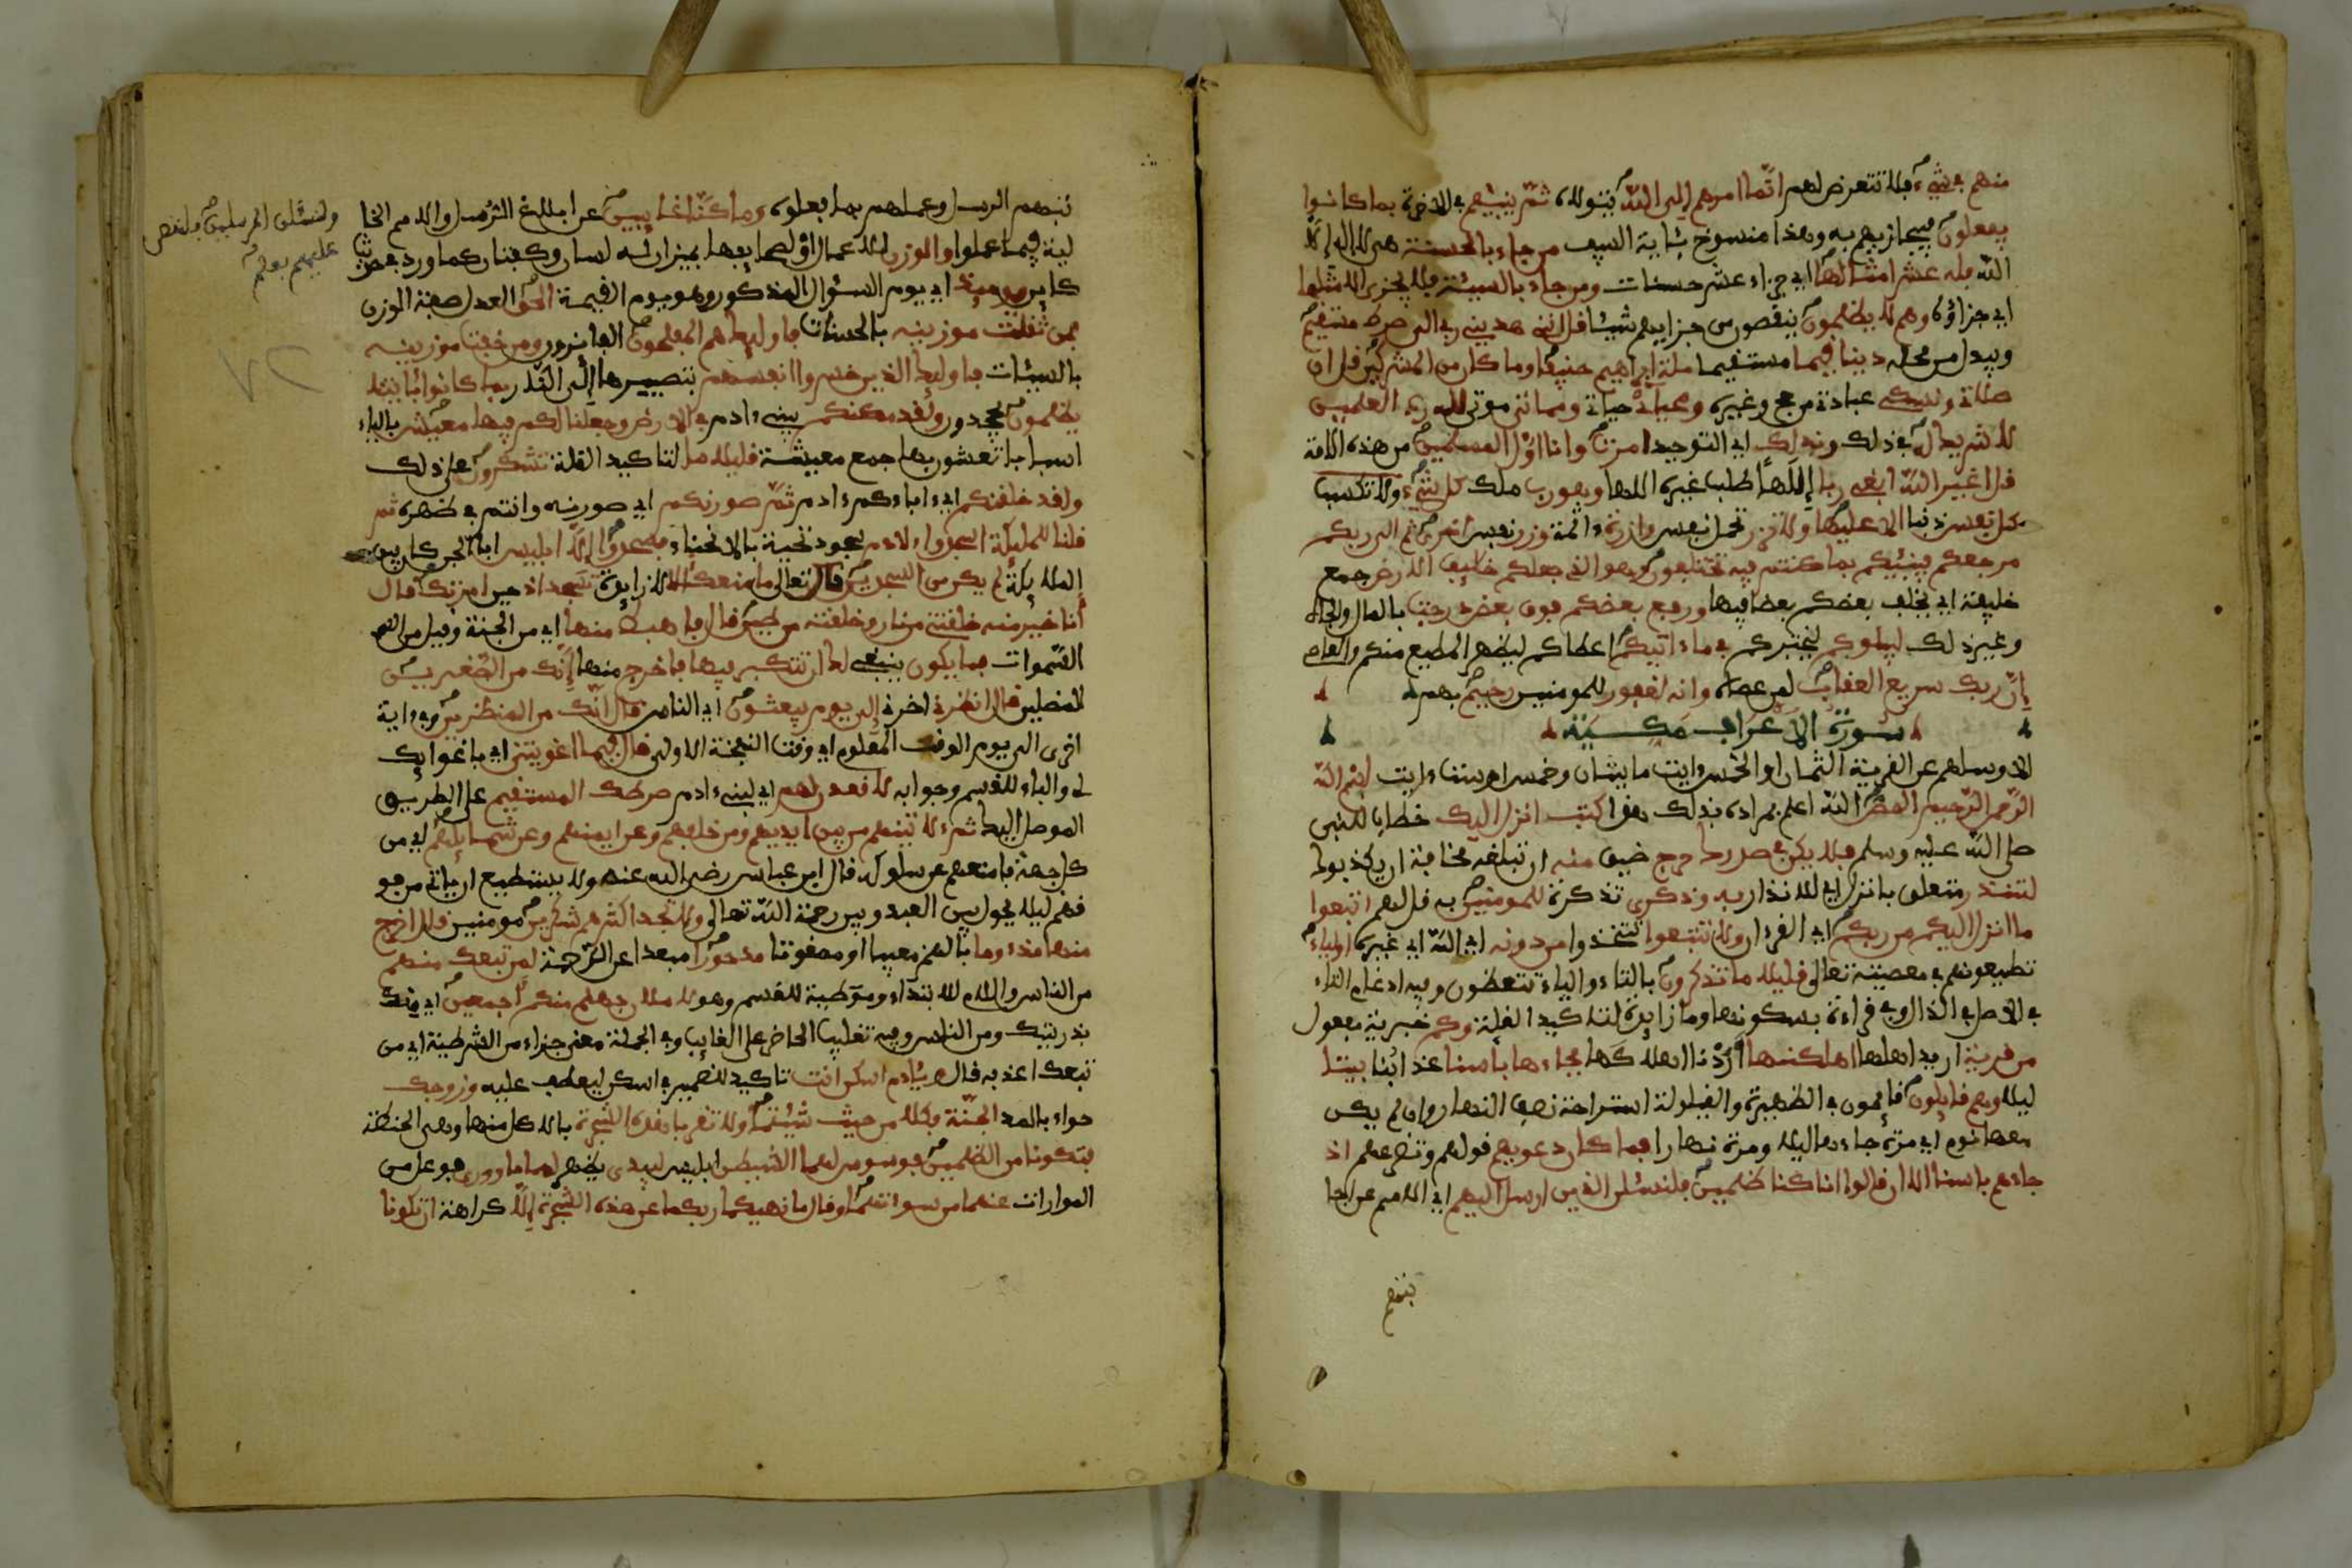 منهم في شيء فلا تتعرض لهم انما امرهم الى الله يتولاه ثم ينبئهم في الاخرة بما كانوا
يفعلون فيجازيهم به وهذا منسوخ بئاية السيف من جاء بالحسنة هي لا اله الا
الله فله عشر امثالها اي جزاء عشر حسنات ومن جاء بالسيئة فلا يجزى الا مثلها
اي جزاؤه وهم لا يظلمون ينقصون من جزايهم شيئا قل انني هديني ربي الى صرط مستقيم
ويبدل من محله دينا قيما مستقيما ملة ابراهيم حنيفا وما كان من المشركين قل ان
صلاتي ونسكي عبادتي من حج وغيره ومحياي حياتي ومماتي موتي لله رب العلمين
لا شريك له في ذلك وبذلك اي التوحيد امرت وانا اول المسلمين من هذه الامة
قل اغير الله ابغي ربا الها اي لا اطلب غيره وهو رب ملك كل شيء ولا تكسب
كل نفس ذنبا الا عليها ولا تزر تحمل نفس وازرة ءاثمة وزر نفس اخرى ثم الى ربكم
مرجعكم فينبئكم بما كنتم فيه تختلفون وهو الذي جعلكم خليف الارض جمع
خليفة اي يخلف بعضكم بعضا فيها ورفع بعضكم فوق بعض درجت بالمال والجاه
وغير ذلك ليبلوكم ليختبركم في ما ءاتيكم اعطاكم ليظهر المطيع منكم والعاص
ان ربك سريع العقاب لمن عصاه وانه لغفور للمومنين رحيم بهم
سورة الاعراف مكية
الا وسلهم عن القرية الثمان او الخمس ءايت مايتان وخمس او ست ءايت بسم الله
الرحمن الرحيم المص الله اعلم بمراده بذلك هذا كتب انزل اليك خطاب للنبي
صلى الله عليه وسلم فلا يكن في صدرك حرج ضيق منه ان تبلغه مخافة ان يكذبوك
لتنذر متعلق بانزل اي للانذار به وذكرى تذكرة للمومنين به قل لهم اتبعوا
ما انزل اليكم من ربكم اي القرءان ولا تتبعوا تتخذوا من دونه اي الله اي غيره اولياء
تطيعونهم في معصيته تعالى قليلا ما تذكرون بالتاء والياء تتعظون وفيه ادغام التاء
في الاصل في الذال وفي قراءة بسكونها وما زايدة لتاكيد القلة وكم خبرية مفعول
من قرية اريد اهلها اهلكنها اردنا اهلاكها فجاءها باسنا عذابنا بيتا
ليلا وهم قايلون قايمون في الظهيرة والقيلولة استراحة نصف النهار وان لم يكن
معها نوم اي مرة جاءها ليلا ومرة نهارا فما كان دعويهم قولهم وتضرعهم اذ
جاءهم باسنا الا ان قالوا انا كنا ظلمين فلنسئلن الذين ارسل اليهم اي الامم عن اجا
بتهم
بتهم الرسل وعملهم بما بلغوه وما كنا غايبين عن ابلاغ الرسل والامم الخا
لية فيما عملوا والوزن للاعمال او لصحايفها بميزان له لسان وكفتان كما ورد في حديث
كاين يوميذ اي يوم السؤال المذكور وهو يوم القيمة الحق العدل صفة الوزن
فمن ثقلت موزينه بالحسنات فاوليك هم المفلحون الفايزون ومن خفت موزينه
بالسيئات فاوليك الذين خسروا انفسهم بتصييرها الى النار بما كانوا بئايتنا
يظلمون يجحدون ولقد مكنكم يبني ءادم في الارض وجعلنا لكم فيها معيش بالياء
اسبابا تعيشون بها جمع معيشة قليلا ما لتاكيد القلة تشكرون على ذلك
ولقد خلقنكم اي ءاباءكم ءادم ثم صورنكم اي صورنه وانتم في ظهره ثم
قلنا للمليكة اسجدوا لادم سجود تحية بالانحناء فسجدوا الا ابليس ابا الجن كان بين
المليكة لم يكن من السجدين قال تعالى ما منعك الا زايدة تسجد اذ حين امرتك قال
انا خير منه خلقتني من نار وخلقته من طين قال فاهبط منها اي من الجنة وقيل من
السموات فما يكون ينبغي لك ان تتكبر فيها فاخرج منها انك من الصغرين
الذليلين قال انظرني اخرني الى يوم يبعثون اي الناس قال انك من المنظرين وفي ءاية
اخرى الى يوم الوقت المعلوم اي وقت النفخة الاولى قال فبما اغويتني اي باغوايك
لي والباء للقسم وجوابه لاقعدن لهم اي لبني ءادم صرطك المستقيم على الطريق
الموصل اليك ثم ءلاتينهم من بين ايديهم ومن خلفهم وعن ايمنهم وعن شمايلهم اي من
كل جهة فامنعهم عن سلوكه قال ابن عباس رضي الله عنه ولا يستطيع ان ياتي من فو
قهم ليلا يحول بين العبد وبين رحمة الله تعالى ولا تجد اكثرهم شكرين مومنين قال اخرج
منها مذءوما بالهمز معيبا او ممقوتا مدحورا مبعدا عن الرحمة لمن تبعك منهم
من الناس واللام للابتداء وموطية للقسم وهو لاملان جهنم منكم اجمعين اي منك
بذريتك ومن الناس وفيه تغليب الحاضر على الغايب وفي الجملة معنى جزاء من الشرطية اي من
تبعك اعذبه قال ويئادم اسكن انت تاكيد للضمير في اسكن ليعطف عليه وزوجك
حواء بالمد الجنة فكلا من حيث شيتما ولا تقربا هذه الشجرة بالاكل منها وهي الحنطة
فتكونا من الظلمين فوسوس لهما الشيطن ابليس ليبدي يظهر لهما ما ووري فوعل من
المواراة عنهما من سوءتهما وقال ما نهيكما ربكما عن هذه الشجرة الا كراهة ان تكونا
ولنسئلن المرسلين فلنقصن
عليهم بعلم